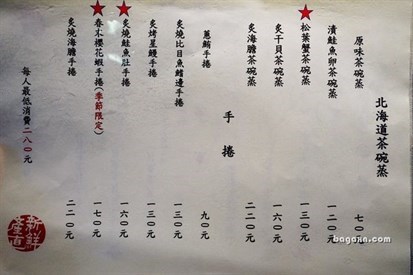 北海道茶碗蒸
原味茶碗蒸 七〇元
漬鮭魚卵茶碗蒸 一二〇元
★松葉蟹茶碗蒸 一三〇元
炙干貝茶碗蒸 一六〇元
炙海膽茶碗蒸 二二〇元
手捲
蔥鮪手捲 九〇元
炙燒比目魚鰭邊手捲 一三〇元
炙烤星鰻手捲 一三〇元
★炙燒鮭魚肚手捲 一六〇元
★春木櫻花蝦手捲(季節限定) 一七〇元
炙燒海膽手捲 二二〇元
每人最低消費二八〇元
新鮮
産直
bagaxin.com